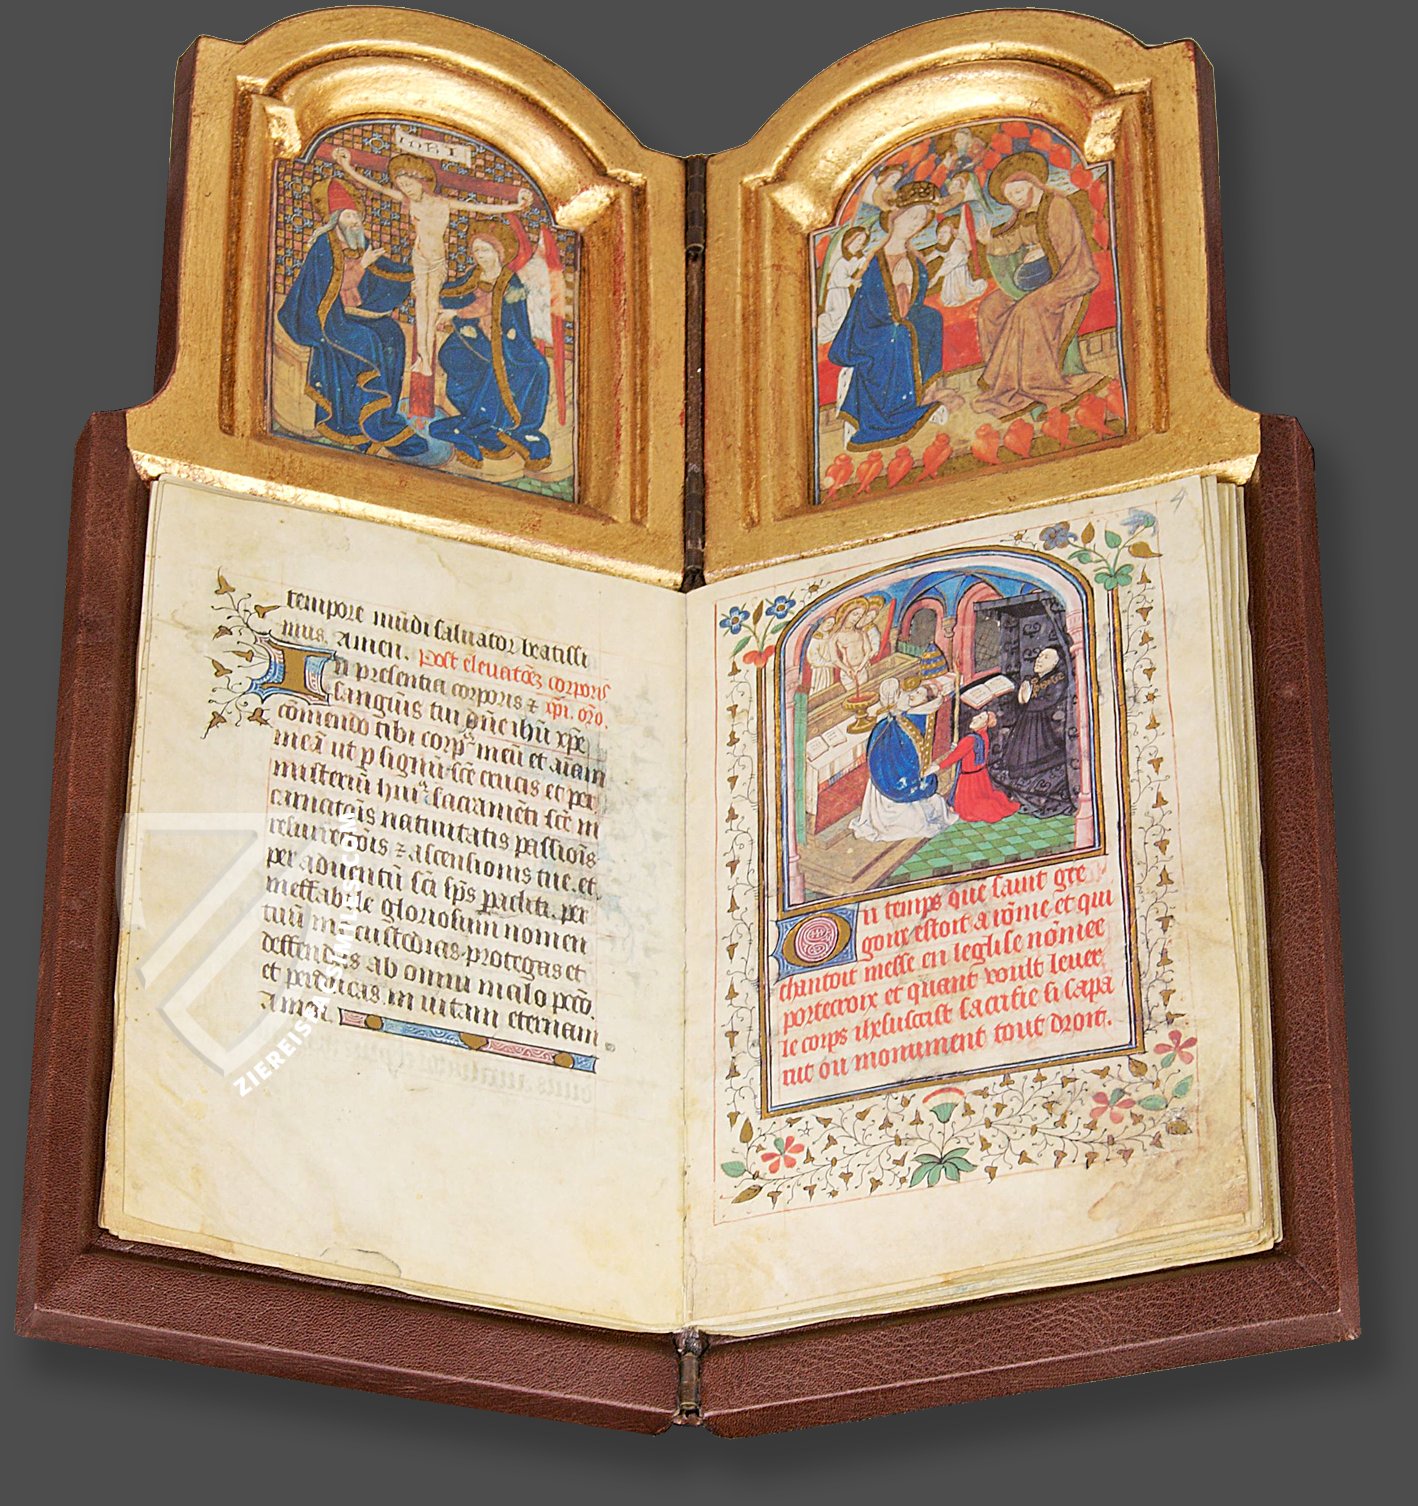 INRI
4
tempore mūdi saluator beatissi
mus. Amen. Post eleuatōȝ corporis
In presentia corporis ⁊ xp̄i. orō.
sanguis tui dn̄e ihū xp̄e
cōmendo tibi corpꝰ meū et aīam
meā ut p signū scē crucis et per
misteriū huiꝰ sacramēti scē in
carnatōis natiuitatis passiōis
resurrectōis ⁊ ascensionis tue. et
per aduentū sc̄i sp̄s paracliti. per
ineffabile gloriosum nomen
tuū me custodias protegas et
deffendas ab omni malo pccō.
et perducas in uitam eternam
Amen.
Du temps que saint gre
goire estoit a rōme et qui
chantoit messe en leglise nōmee
portecroix et quant voult leuer
le corps ihxsuscist sacrifie si sapa
rut ou monument tout droit.
ZIEREIS FAKSIMILES.COM